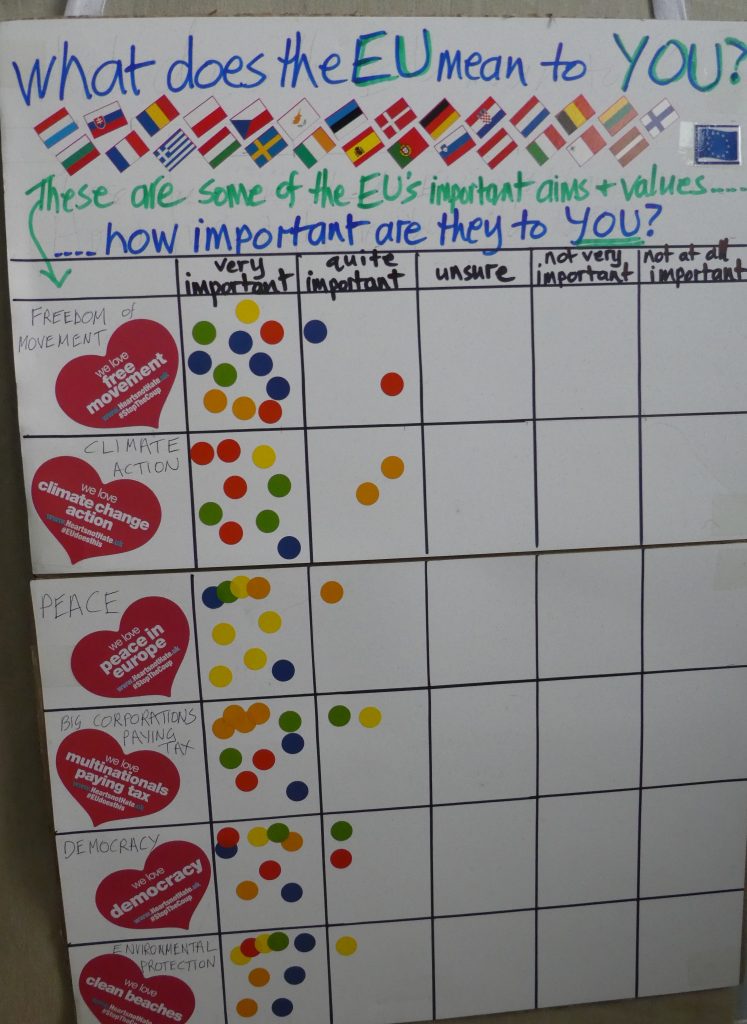 What does the EU mean to YOU?
These are some of the EU's important aims + values....
.... how important are they to YOU?
very important
quite important
unsure
not very important
not at all important
FREEDOM of
MOVEMENT
we love
free
movement
www.HeartsnotHate.uk
#StopTheCoup
CLIMATE
ACTION
we love
climate change
action
www.HeartsnotHate.uk
#EUdoesthis
PEACE
we love
peace in
europe
www.HeartsnotHate.uk
#StopTheCoup
BIG CORPORATIONS
PAYING
TAX
we love
multinationals
paying tax
www.HeartsnotHate.uk
#EUdoesthis
DEMOCRACY
we love
democracy
www.HeartsnotHate.uk
#StopTheCoup
ENVIRONMENTAL
PROTECTION
we love
clean beaches
www.HeartsnotHate.uk